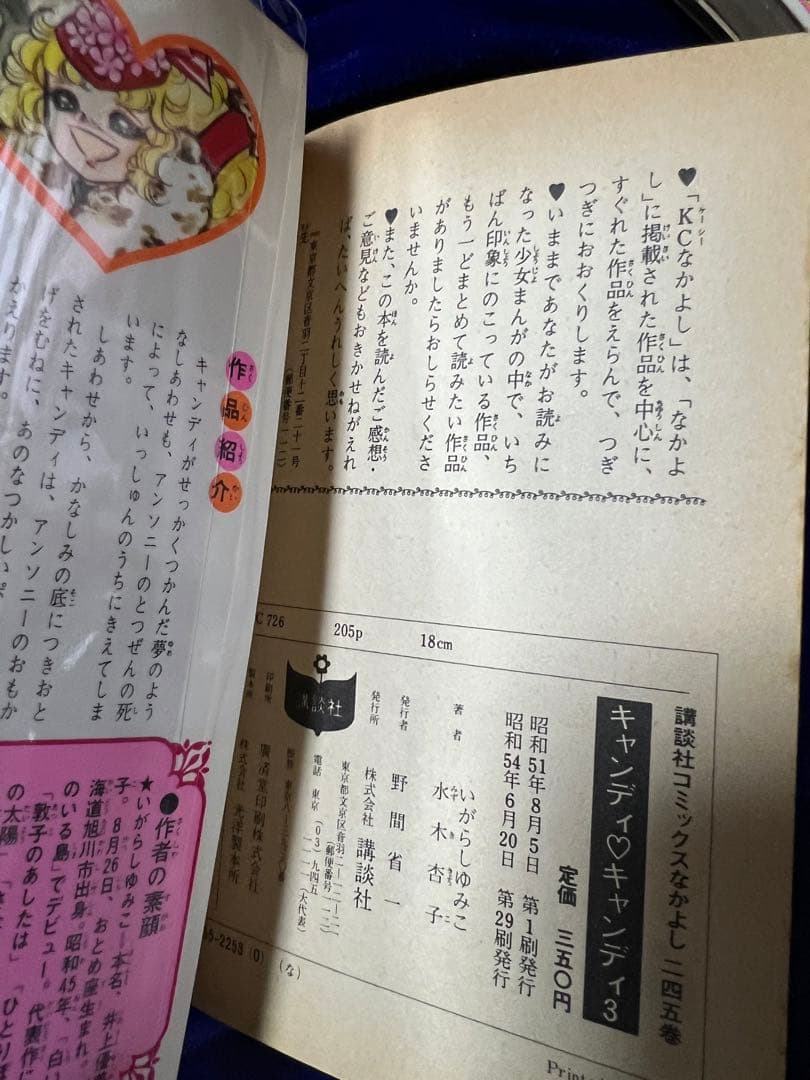 ♥「KCなかよし」は、「なかよ
し」に掲載された作品を中心に、
すぐれた作品をえらんで、つぎ
つぎにおおくりします。
♥いままであなたがお読みに
なった少女まんがの中で、いち
ばん印象にのこっている作品、
もう一どまとめて読みたい作品
がありましたらおしらせくださ
いませんか。
♥また、この本を読んだご感想・
ご意見などもおきかせねがえれ
ば、たいへんうれしく思います。
東京都文京区音羽二丁目十二番二十一号
(郵便番号一一二)
C 726 205p 18cm
講談社コミックスなかよし 二四五巻
キャンディ♡キャンディ3
定価 三五〇円
昭和51年8月5日 第1刷発行
昭和54年6月20日 第29刷発行
著者 いがらしゆみこ
水木杏子
発行者 野間省一
発行所 株式会社 講談社
東京都文京区音羽二-一二-二一
(郵便番号一一二)
電話 東京(03)九四五
一一一一(大代表)
講談社
印刷所 廣済堂印刷株式会社
製本所 株式会社 光洋製本所
5-2253 (0) (な)
Print
作品紹介
キャンディがせっかくつかんだ夢のよう
なしあわせも、アンソニーのとつぜんの死
によって、いっしゅんのうちにきえてしま
います。
しあわせから、かなしみの底につきおと
されたキャンディは、アンソニーのおもか
げをむねに、あのなつかしいポ
かえります。
●作者の素顔
★いがらしゆみこ=本名、井上優
子。8月26日、おとめ座生まれ。
海道旭川市出身。昭和45年、「白い
のいる島」でデビュー。代表作に
「敦子のあしたは」「ひとりぼ
の太陽」